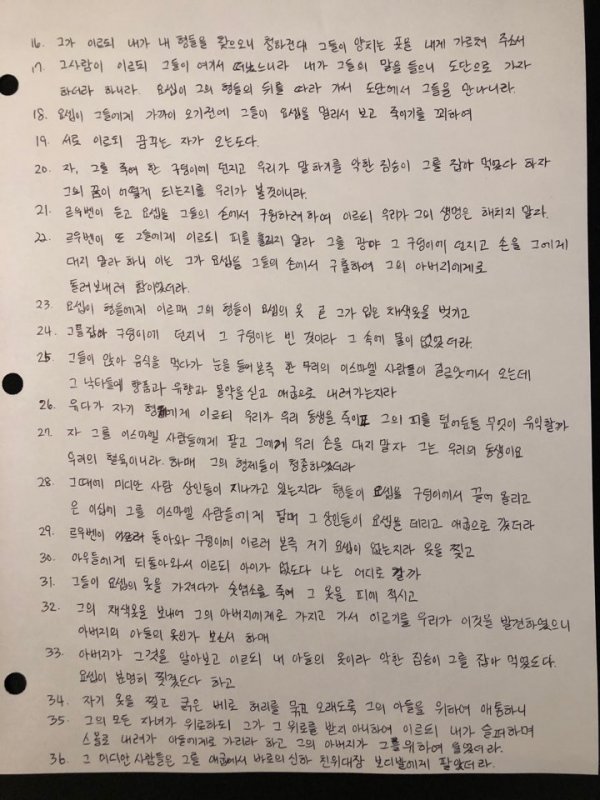 16. 그가 이르되 내가 내 형들을 찾으오니 청하건대 그들이 양치는 곳을 내게 가르쳐 주소서
17. 그사람이 이르되 그들이 여기서 떠났느니라 내가 그들의 말을 들으니 도단으로 가자
하더라 하니라. 요셉이 그의 형들의 뒤를 따라 가서 도단에서 그들을 만나니라.
18. 요셉이 그들에게 가까이 오기전에 그들이 요셉을 멀리서 보고 죽이기를 꾀하여
19. 서로 이르되 꿈꾸는 자가 오는도다.
20. 자, 그를 죽여 한 구덩이에 던지고 우리가 말하기를 악한 짐승이 그를 잡아 먹었다 하자
그의 꿈이 어떻게 되는지를 우리가 볼것이니라.
21. 르우벤이 듣고 요셉을 그들의 손에서 구원하려하여 이르되 우리가 그의 생명은 해치지 말자.
22. 르우벤이 또 그들에게 이르되 피를 흘리지 말라 그를 광야 그 구덩이에 던지고 손을 그에게
대지 말라 하니 이는 그가 요셉을 그들의 손에서 구출하여 그의 아버지에게로
돌려보내려 함이었더라.
23. 요셉이 형들에게 이르매 그의 형들이 요셉의 옷 곧 그가 입은 채색옷을 벗기고
24. 그를잡아 구덩이에 던지니 그 구덩이는 빈 것이라 그 속에 물이 없었더라.
25. 그들이 앉아 음식을 먹다가 눈을 들어본즉 한 무리의 이스마엘 사람들이 길르앗에서 오는데
그 낙타들에 향품과 유향과 몰약을 싣고 애굽으로 내려가는지라
26. 유다가 자기 형제에게 이르되 우리가 우리 동생을 죽이고 그의 피를 덮어둔들 무엇이 유익할까
27. 자 그를 이스마엘 사람들에게 팔고 그에게 우리 손을 대지 말자 그는 우리의 동생이요
우리의 혈육이니라. 하매 그의 형제들이 청종하였더라
28. 그때에 미디안 사람 상인들이 지나가고 있는지라 형들이 요셉을 구덩이에서 끌어 올리고
은 이십에 그를 이스마엘 사람들에게 팔매 그 상인들이 요셉을 데리고 애굽으로 갔더라
29. 르우벤이 돌아와 구덩이에 이르러 본즉 거기 요셉이 없는지라 옷을 찢고
30. 아우들에게 되돌아와서 이르되 아이가 없도다 나는 어디로 갈까
31. 그들이 요셉의 옷을 가져다가 숫염소를 죽여 그 옷을 피에 적시고
32. 그의 채색옷을 보내어 그의 아버지에게로 가지고 가서 이르기를 우리가 이것을 발견하였으니
아버지의 아들의 옷인가 보소서 하매
33. 아버지가 그것을 알아보고 이르되 내 아들의 옷이라 악한 짐승이 그를 잡아 먹었도다.
요셉이 분명히 찢겼도다 하고
34. 자기 옷을 찢고 굵은 베로 허리를 묶고 오래도록 그의 아들을 위하여 애통하니
35. 그의 모든 자녀가 위로하되 그가 그 위로를 받지 아니하여 이르되 내가 슬퍼하며
스올로 내려가 아들에게로 가리라 하고 그의 아버지가 그를 위하여 울었더라.
36. 그 미디안 사람들은 그를 애굽에서 바로의 신하 친위대장 보디발에게 팔았더라.